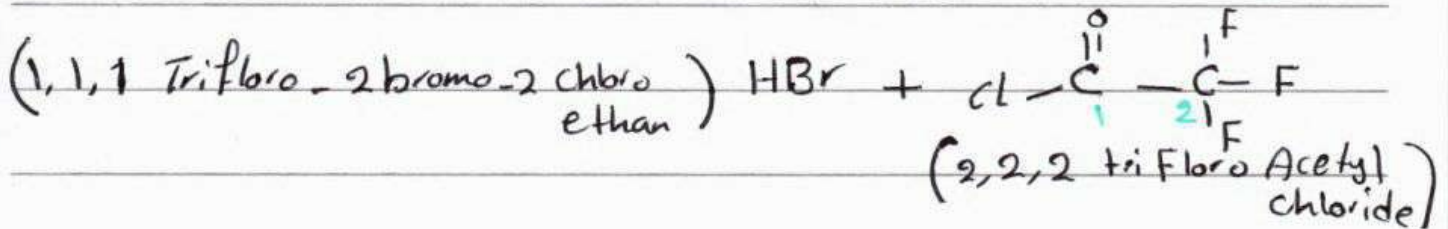 (1,1,1 Trifloro - 2 bromo - 2 chloro ethan) HBr + Cl - C - C - F
O
F
1 2 F
(2,2,2 tri Floro Acetyl chloride)